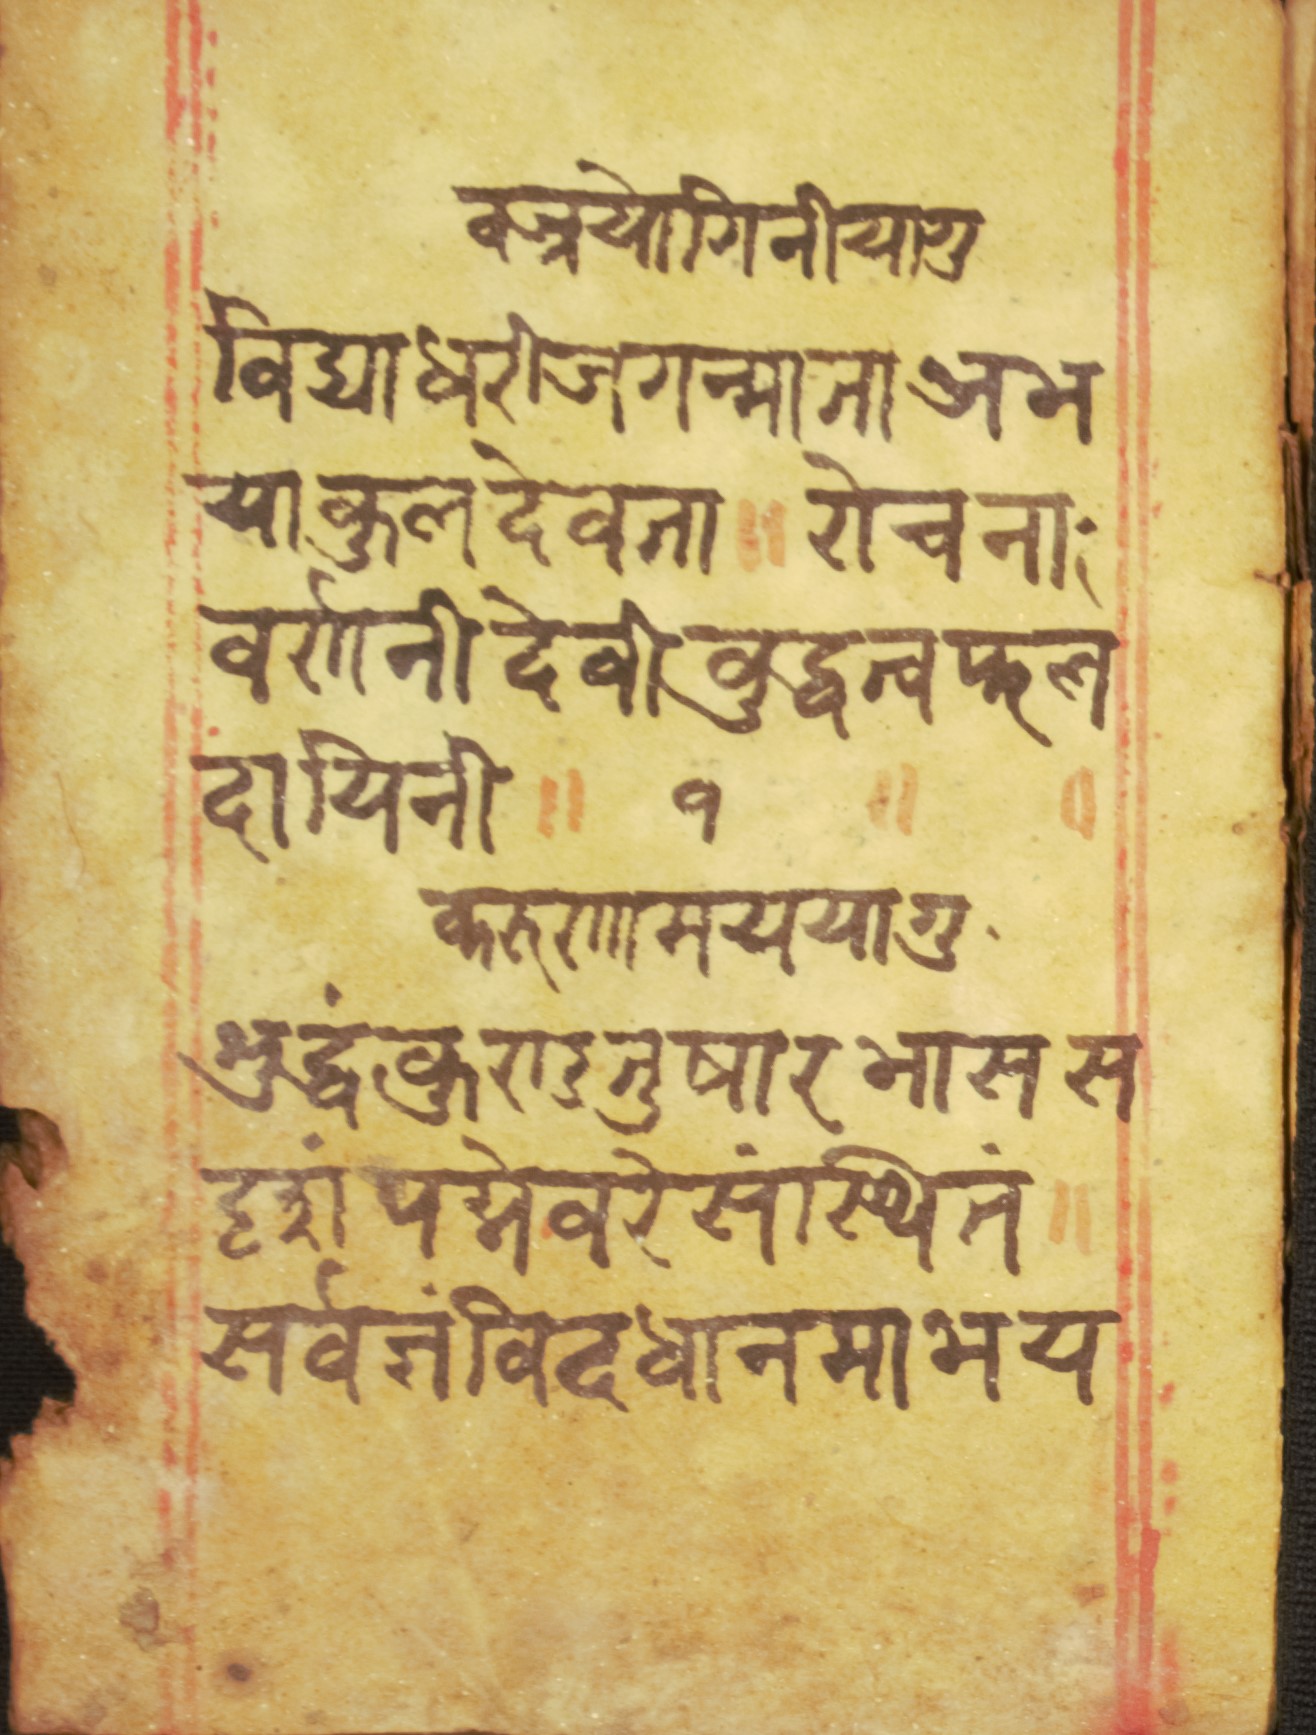 वज्रयोगिनीयागु
विद्याधरीजगन्माता अभ
याकुलदेवता ॥ रोचनाः
वर्णनीदेवीवुद्धत्वफल
दायिनी ॥ १ ॥ ०
करुणामययागु
शुद्धंकुराउतुषारभासस
दृशंपद्मेवरेसंस्थितं ॥
सर्वज्ञंविदधानमाभय